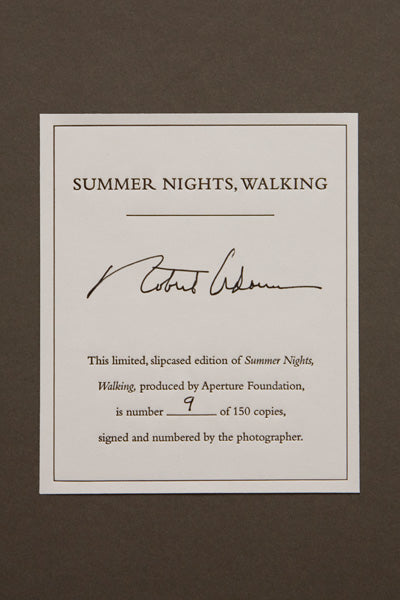 SUMMER NIGHTS, WALKING
Robert Adams
This limited, slipcased edition of Summer Nights,
Walking, produced by Aperture Foundation,
is number 9 of 150 copies,
signed and numbered by the photographer.